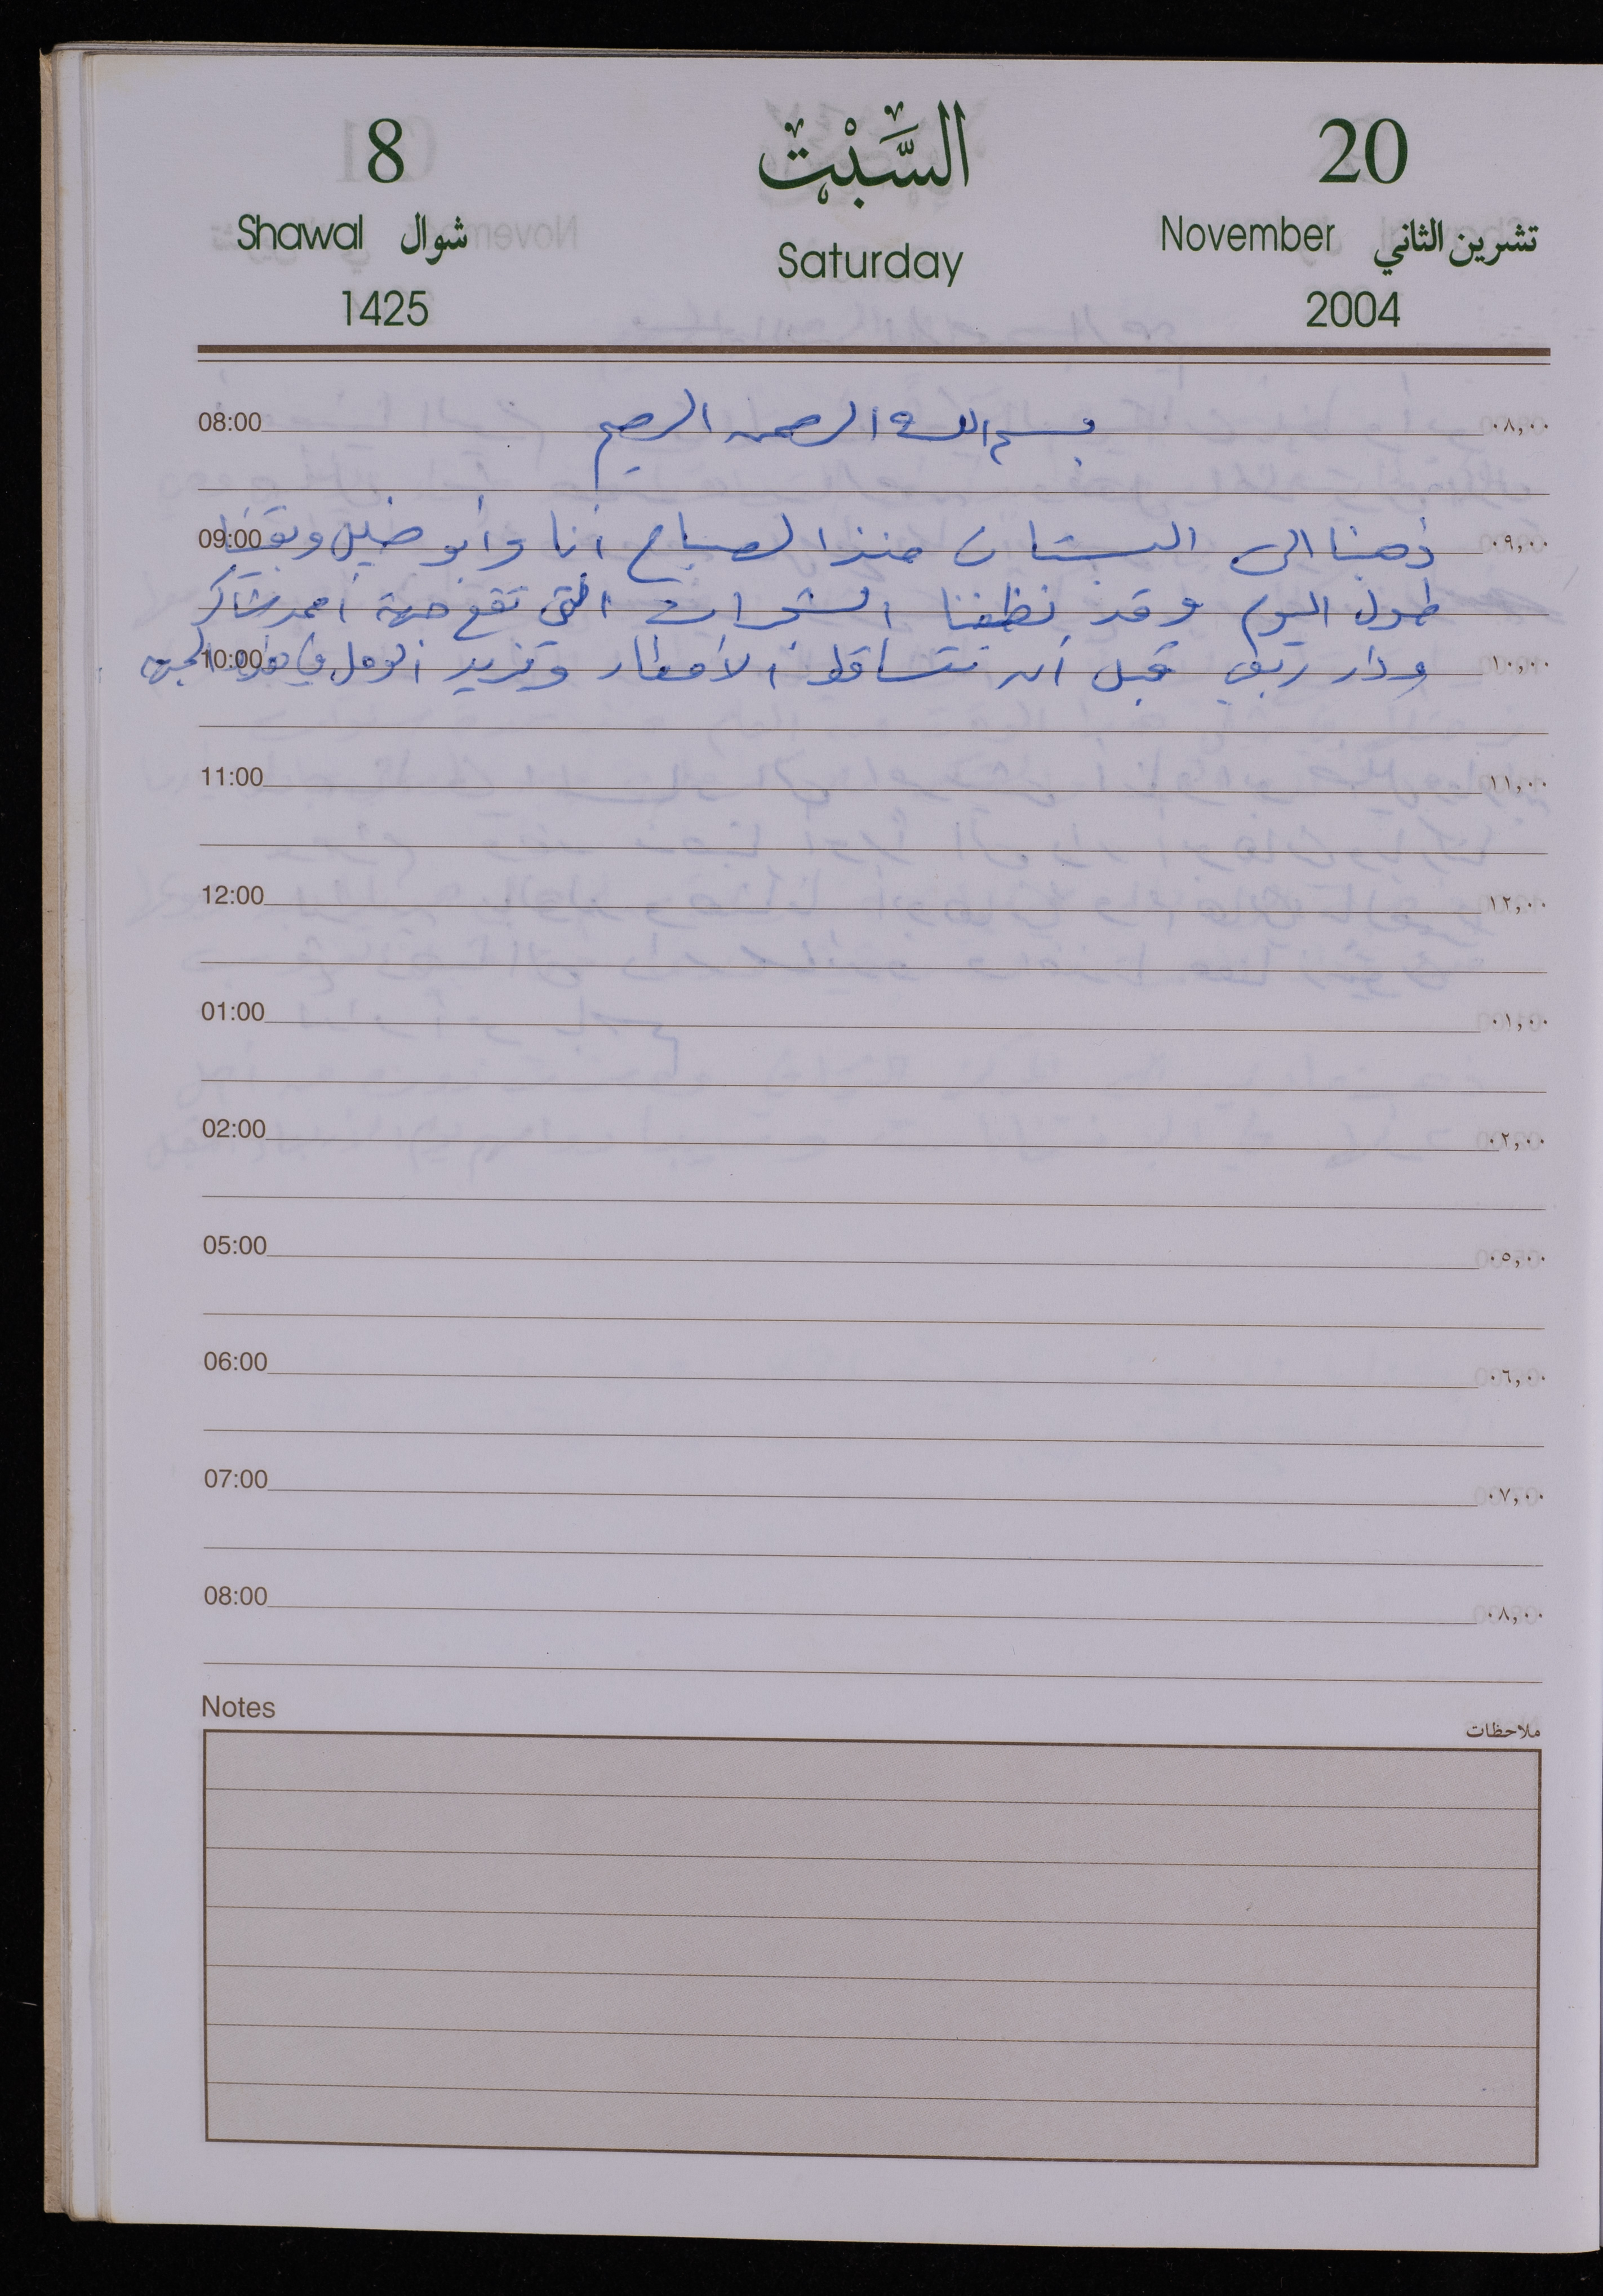 8 السَّبْت 20
Shawal شوال Saturday November تشرين الثاني
1425 2004
08:00 بسم الله الرحمن الرحيم ٠٨,٠٠
09:00 ذهبنا إلى البستان منذ الصباح أنا وأبو خليل وبقينا ٠٩,٠٠
طول اليوم وقد نظفنا الشجرات التي تقع جهة أحمد شاكر
10:00 ودار ربقي قبل أن تتساقط الأمطار وتزيد الوحل في هذه الجهة ١٠,٠٠
11:00 ١١,٠٠
12:00 ١٢,٠٠
01:00 ٠١,٠٠
02:00 ٠٢,٠٠
05:00 ٠٥,٠٠
06:00 ٠٦,٠٠
07:00 ٠٧,٠٠
08:00 ٠٨,٠٠
Notes ملاحظات